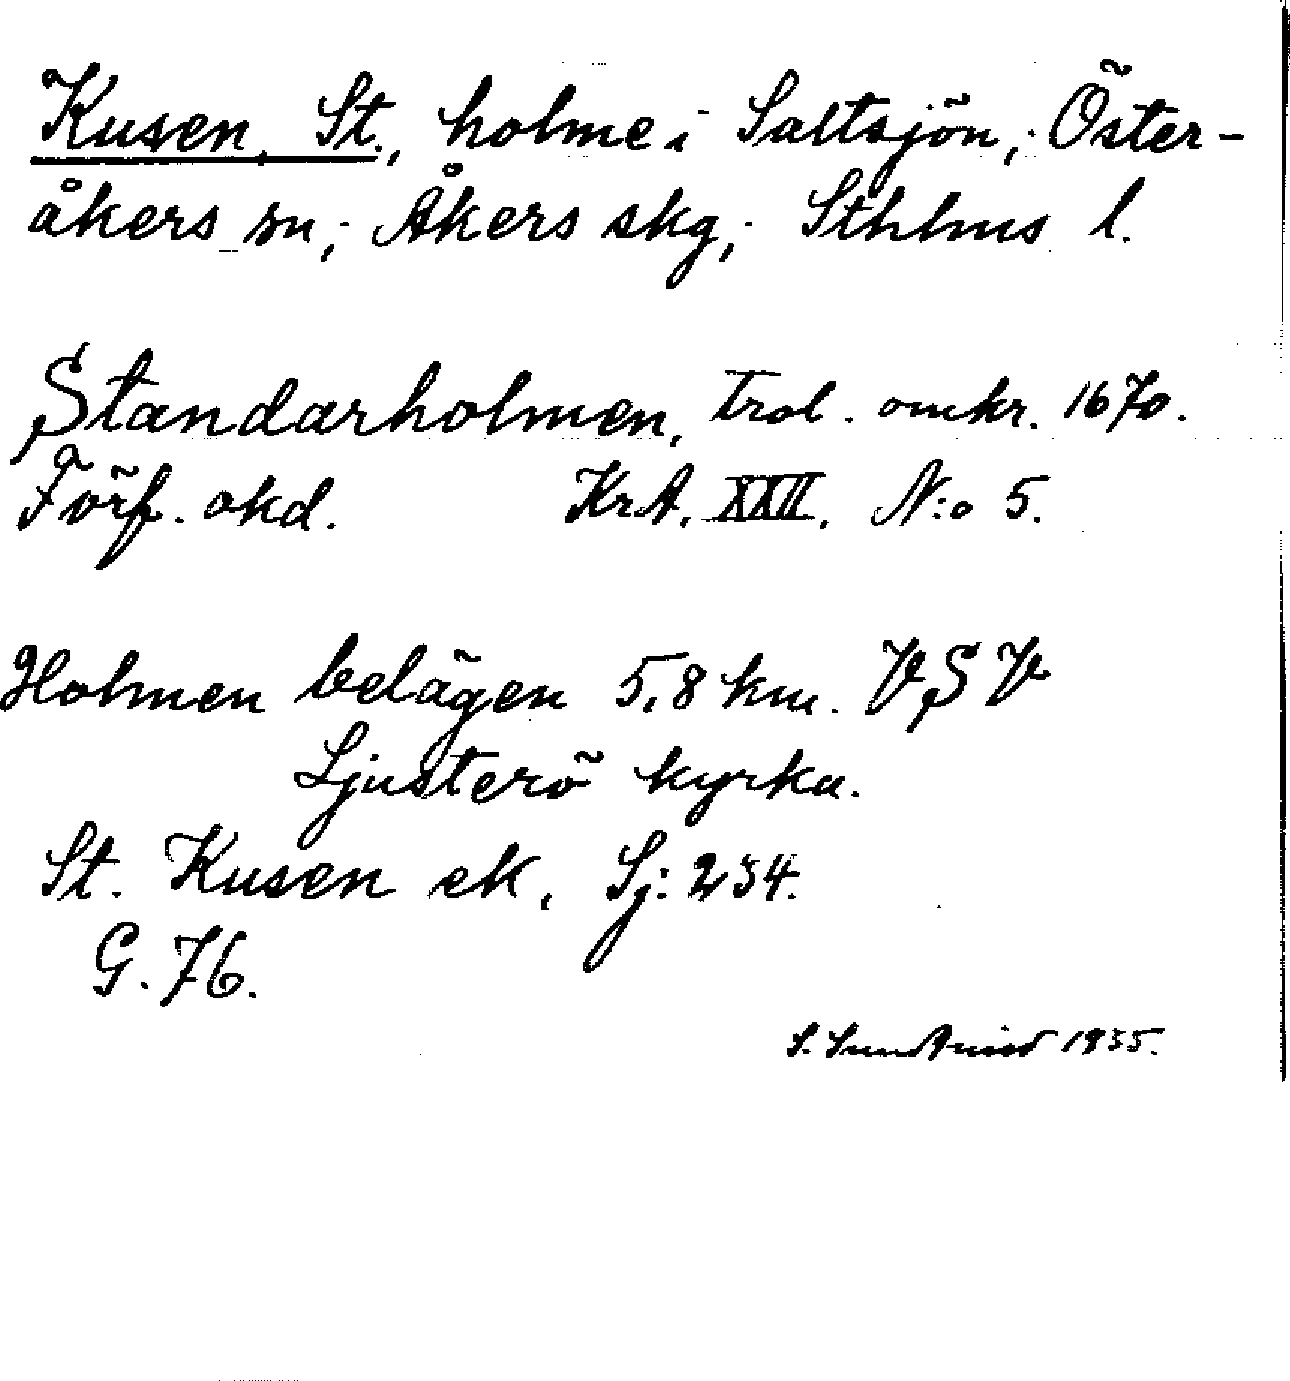 Kusen, St., holme i Saltsjön, Öster-
åkers sn, Åkers skg, Sthlms l.
Standarholmen, trol. omkr. 1670.
Förf. okd. KrA. XXII. N:o 5.
Holmen belägen 5,8 km. VSV
Ljusterö kyrka.
St. Kusen ek. Sj: 234.
G. 76.
S. Sundkvist 1935.